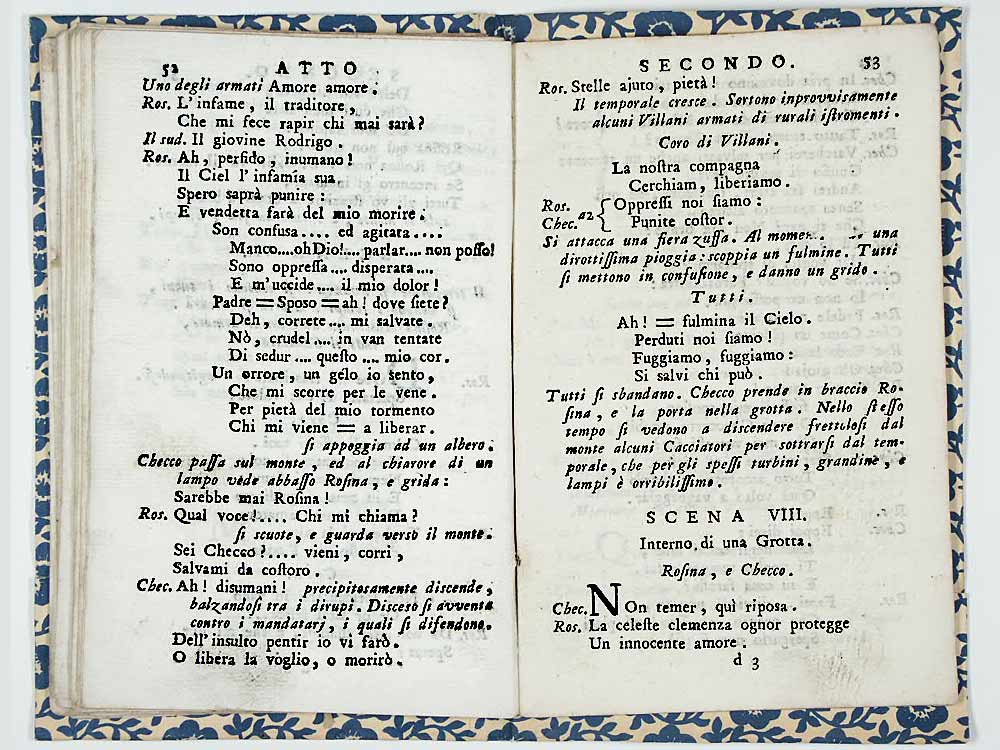 52 ATTO
Uno degli armati Amore amore.
Ros. L' infame, il traditore,
Che mi fece rapir chi mai sarà?
Il sud. Il giovine Rodrigo.
Ros. Ah, perfido, inumano!
Il Ciel l' infamía sua
Spero saprà punire:
E vendetta farà del mio morire.
Son confusa.... ed agitata....
Manco....oh Dio!....parlar....non posso!
Sono oppressa.... disperata....
E m'uccide.... il mio dolor!
Padre = Sposo = ah! dove siete?
Deh, correte.... mi salvate.
Nò, crudel.... in van tentate
Di sedur.... questo.... mio cor.
Un orrore, un gelo io sento,
Che mi scorre per le vene.
Per pietà del mio tormento
Chi mi viene = a liberar.
si appoggia ad un albero.
Checco passa sul monte, ed al chiarore di un
lampo vede abbasso Rosina, e grida:
Sarebbe mai Rosina!
Ros. Qual voce!.... Chi mi chiama?
si scuote, e guarda verso il monte.
Sei Checco?.... vieni, corri,
Salvami da costoro.
Chec. Ah! disumani! precipitosamente discende,
balzandosi tra i dirupi. Disceso si avventa
contro i mandatarj, i quali si difendono.
Dell' insulto pentir io vi farò.
O libera la voglio, o morirò.
SECONDO. 53
Ros. Stelle ajuto, pietà!
Il temporale cresce. Sortono inprovvisamente
alcuni Villani armati di rurali istromenti.
Coro di Villani.
La nostra compagna
Cerchiam, liberiamo.
Ros. Oppressi noi siamo:
Chec. a2 { Punite costor.
Si attacca una fiera zuffa. Al momen. una
dirottissima pioggia: scoppia un fulmine. Tutti
si mettono in confusione, e danno un grido.
Tutti.
Ah! = fulmina il Cielo.
Perduti noi siamo!
Fuggiamo, fuggiamo:
Si salvi chi può.
Tutti si sbandano. Checco prende in braccio Ro-
sina, e la porta nella grotta. Nello stesso
tempo si vedono a discendere frettulosi dal
monte alcuni Cacciatori per sottrarsi dal tem-
porale, che per gli spessi turbini, grandine, e
lampi è orribilissimo.
SCENA VIII.
Interno di una Grotta.
Rosina, e Checco.
Chec. NOn temer, quì riposa.
Ros. La celeste clemenza ognor protegge
Un innocente amore.
d 3